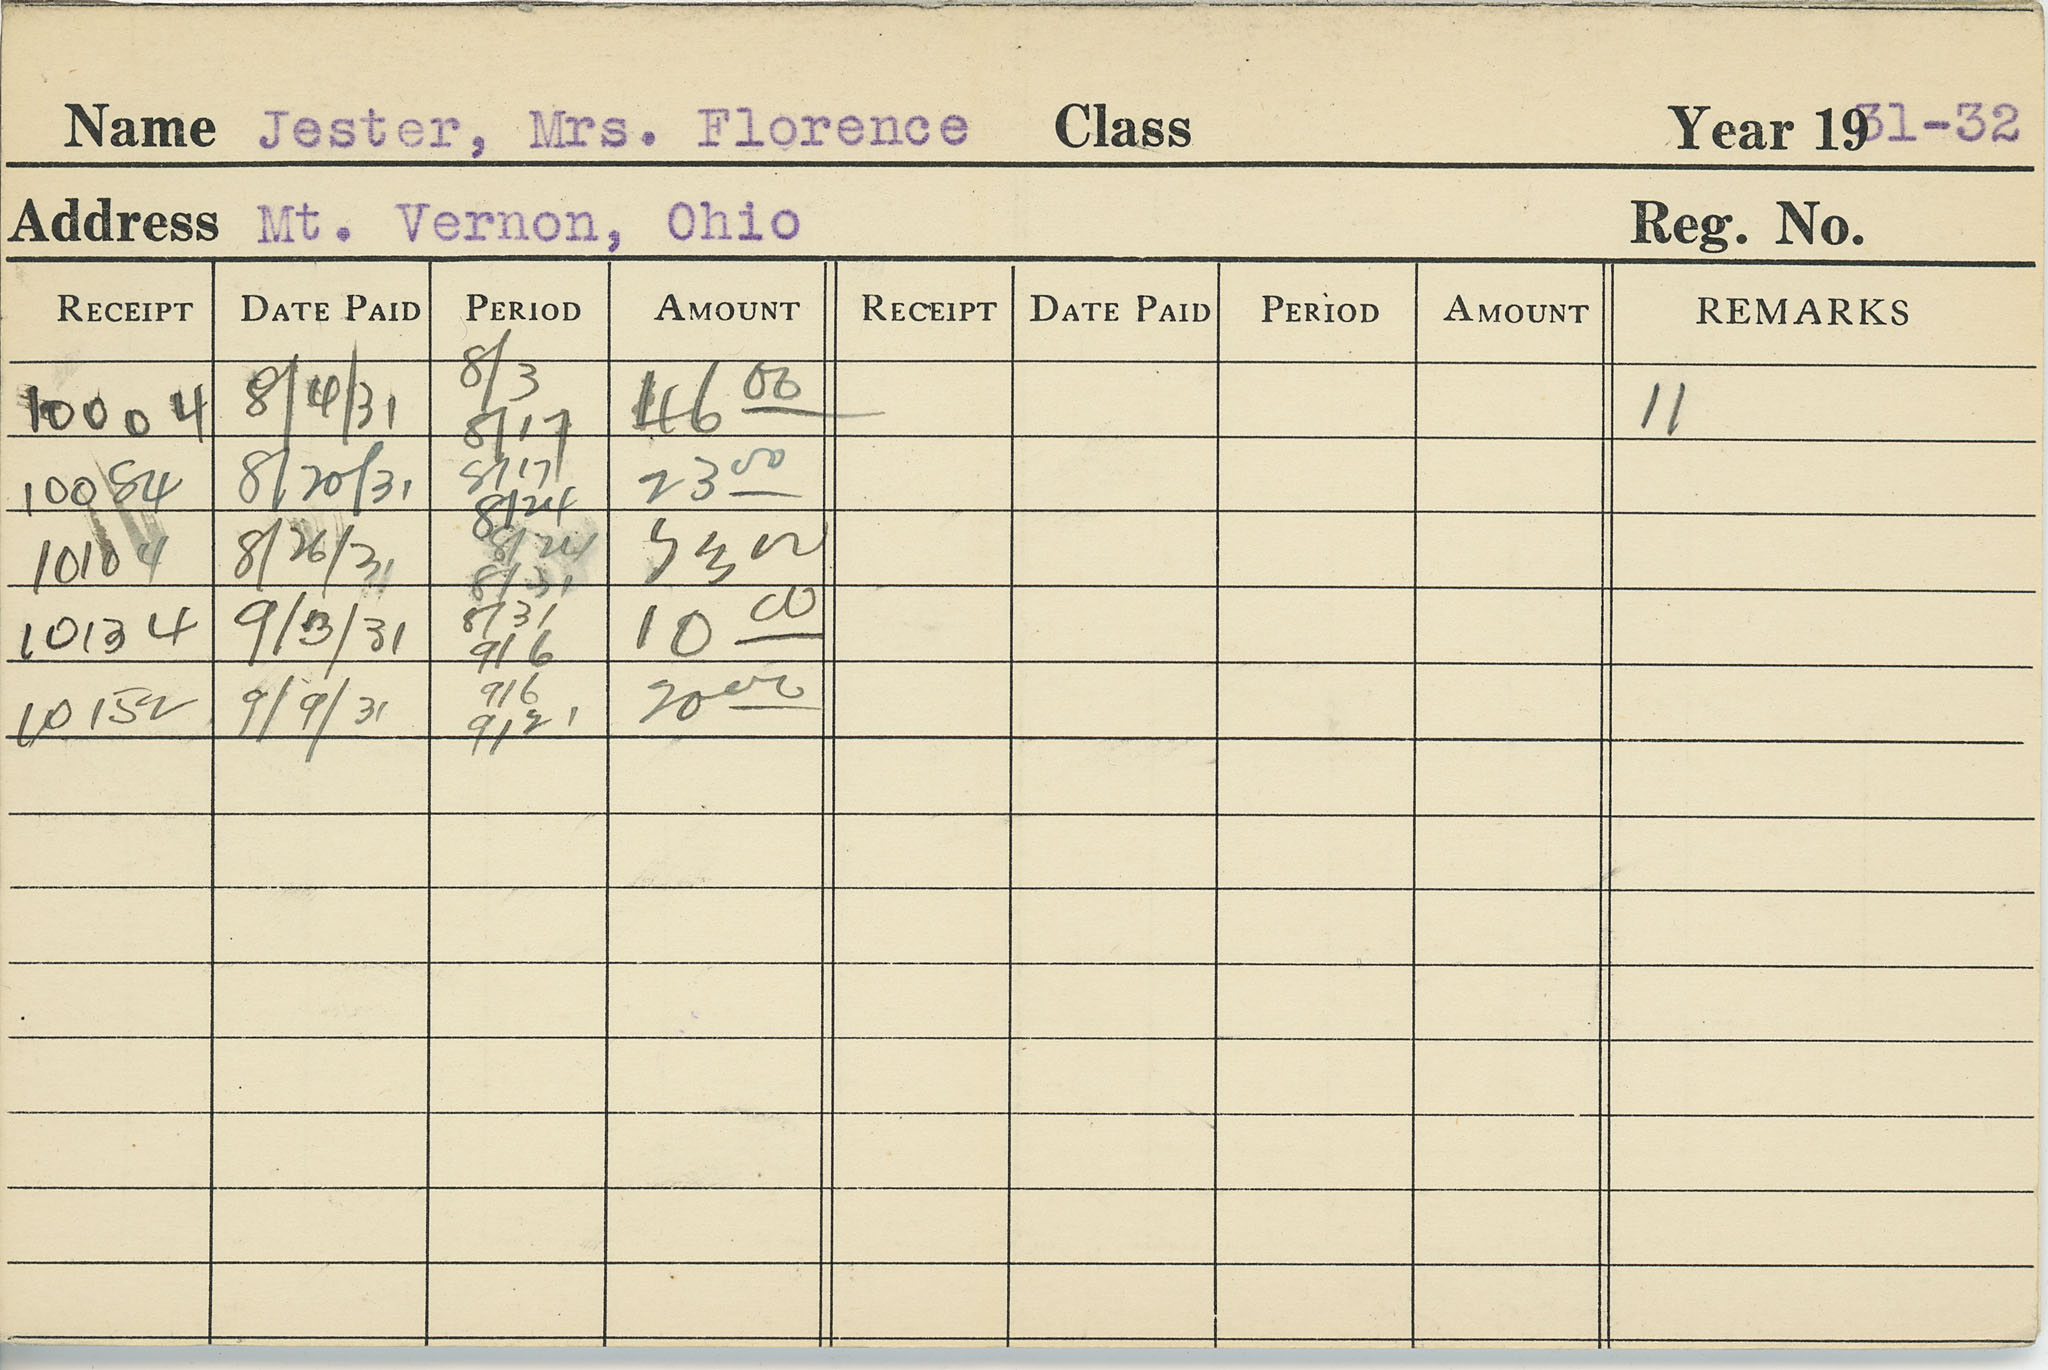 Name Jester, Mrs. Florence Class Year 1931-32
Address Mt. Vernon, Ohio Reg. No.
RECEIPT DATE PAID PERIOD AMOUNT RECEIPT DATE PAID PERIOD AMOUNT REMARKS
8/3
10004 8/4/31 46 00 11
8/17
8/17
10084 8/20/31 23 00
8/24
8/24
10104 8/26/31
8/31
8/31
10134 9/3/31 10 00
9/6
9/6
10152 9/9/31 20 00
9/21